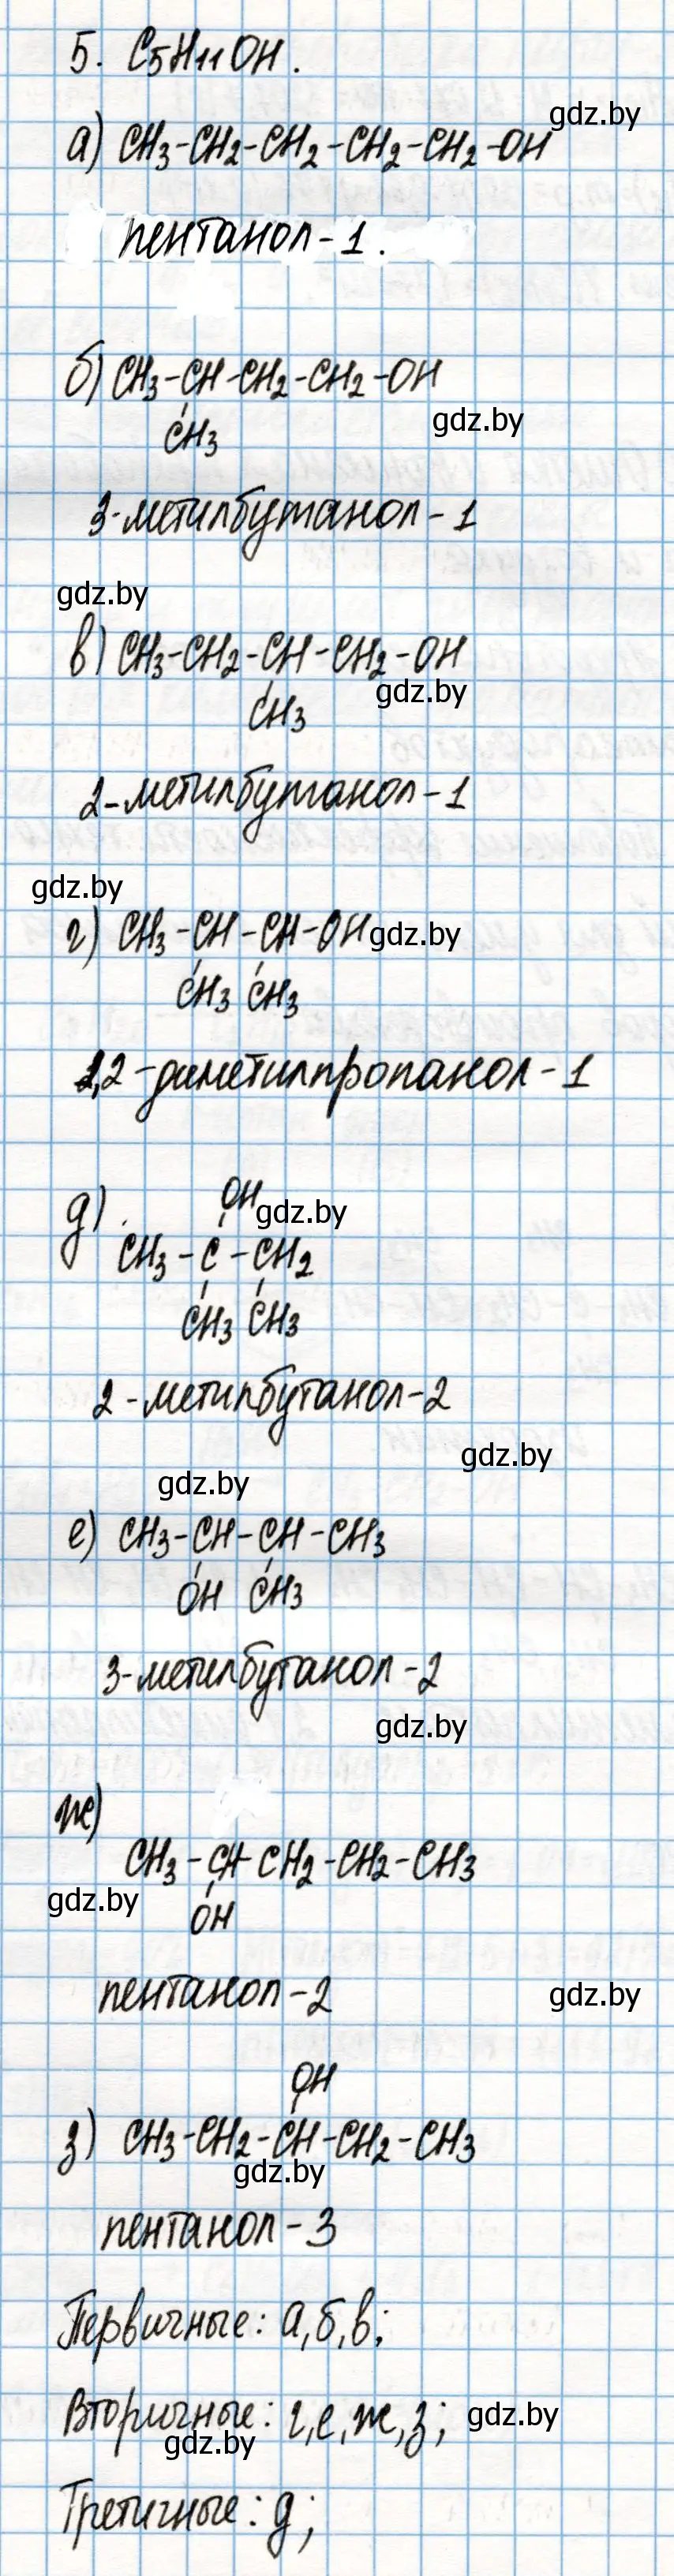 5. C5H11OH.
gdz.by
а) CH3-CH2-CH2-CH2-CH2-OH
пентанол-1.
б) CH3-CH-CH2-CH2-OH
gdz.by
CH3
3-метилбутанол-1
gdz.by
в) CH3-CH2-CH-CH2-OH
gdz.by
CH3
2-метилбутанол-1
gdz.by
г) CH3-CH-CH-OH gdz.by
CH3 CH3
1,2-диметилпропанол-1
OH
gdz.by
д)
CH3-C-CH2
CH3 CH3
2-метилбутанол-2
gdz.by
gdz.by
е) CH3-CH-CH-CH3
OH CH3
3-метилбутанол-2
gdz.by
ж)
CH3-CH-CH2-CH2-CH3
gdz.by
OH
пентанол-2
gdz.by
OH
з) CH3-CH2-CH-CH2-CH3
gdz.by
пентанол-3
Первичные: а,б,в;
Вторичные: г,е,ж,з;
gdz.by
gdz.by
Третичные: д;